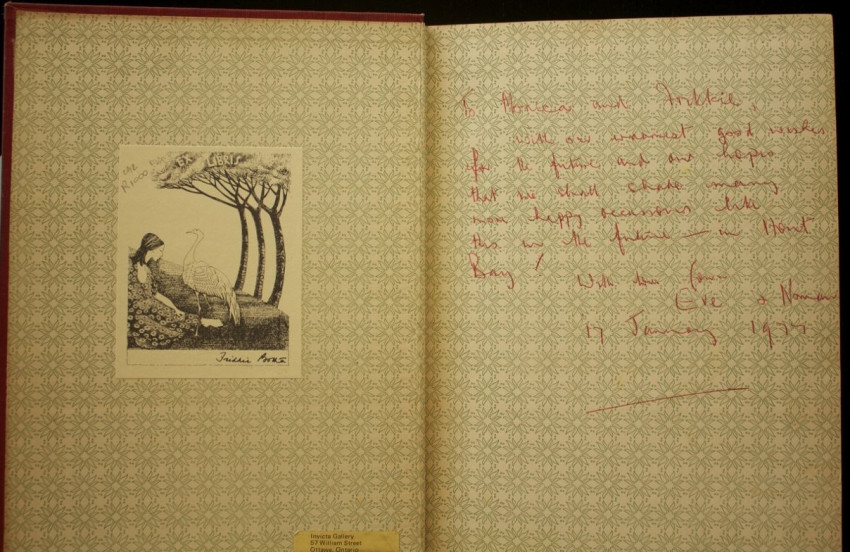 EX LIBRIS
R1000
Invicta Gallery
57 William Street
Ottawa, Ontario
To Monica and
with our warmest good wishes
for the future and our hopes
that we shall share many
more happy occasions like
this in the future — in Hout
Bay!
With love from
Eve & Norman
17 January 1977